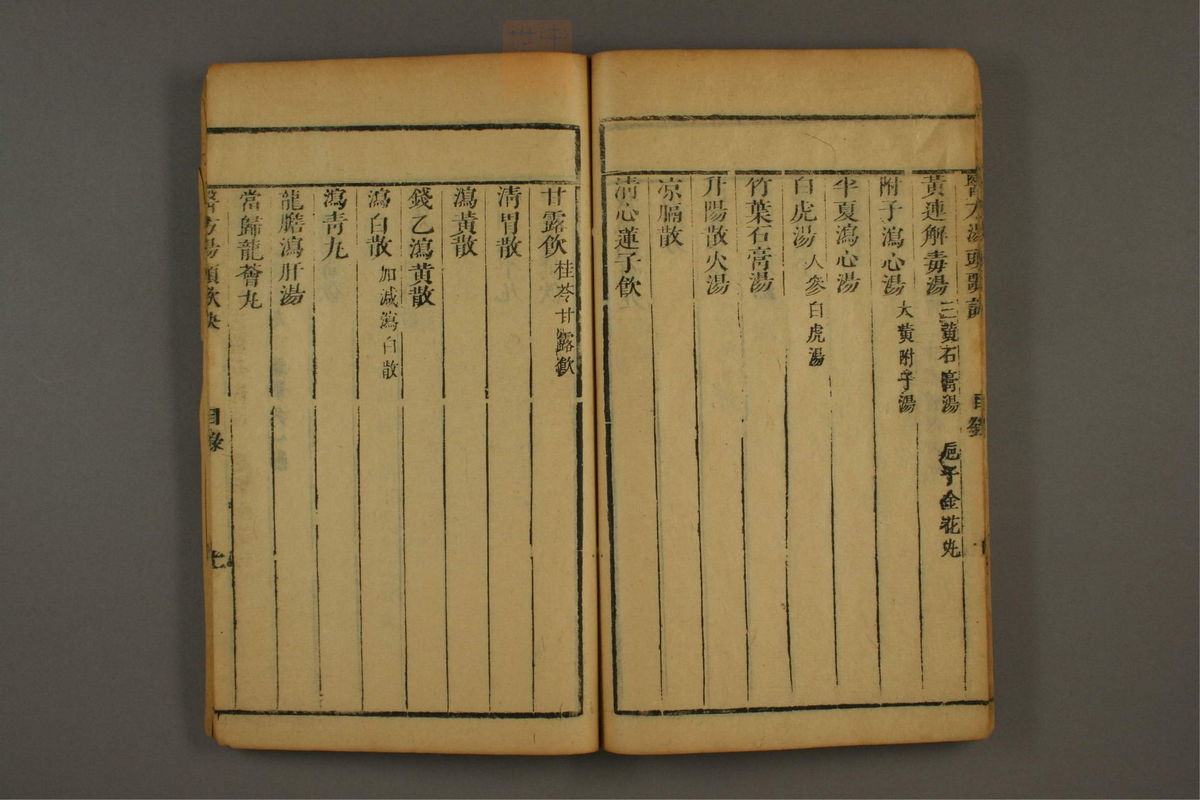 醫方湯頭歌訣 目錄
黃連解毒湯 三黃石膏湯 梔子金花丸
附子瀉心湯 大黃附子湯
半夏瀉心湯
白虎湯 人參白虎湯
竹葉石膏湯
升陽散火湯
凉膈散
清心蓮子飲
甘露飲 桂苓甘露飲
清胃散
瀉黃散
錢乙瀉黃散
瀉白散 加減瀉白散
瀉青丸
龍膽瀉肝湯
當歸龍薈丸
醫方湯頭歌訣 目錄 七